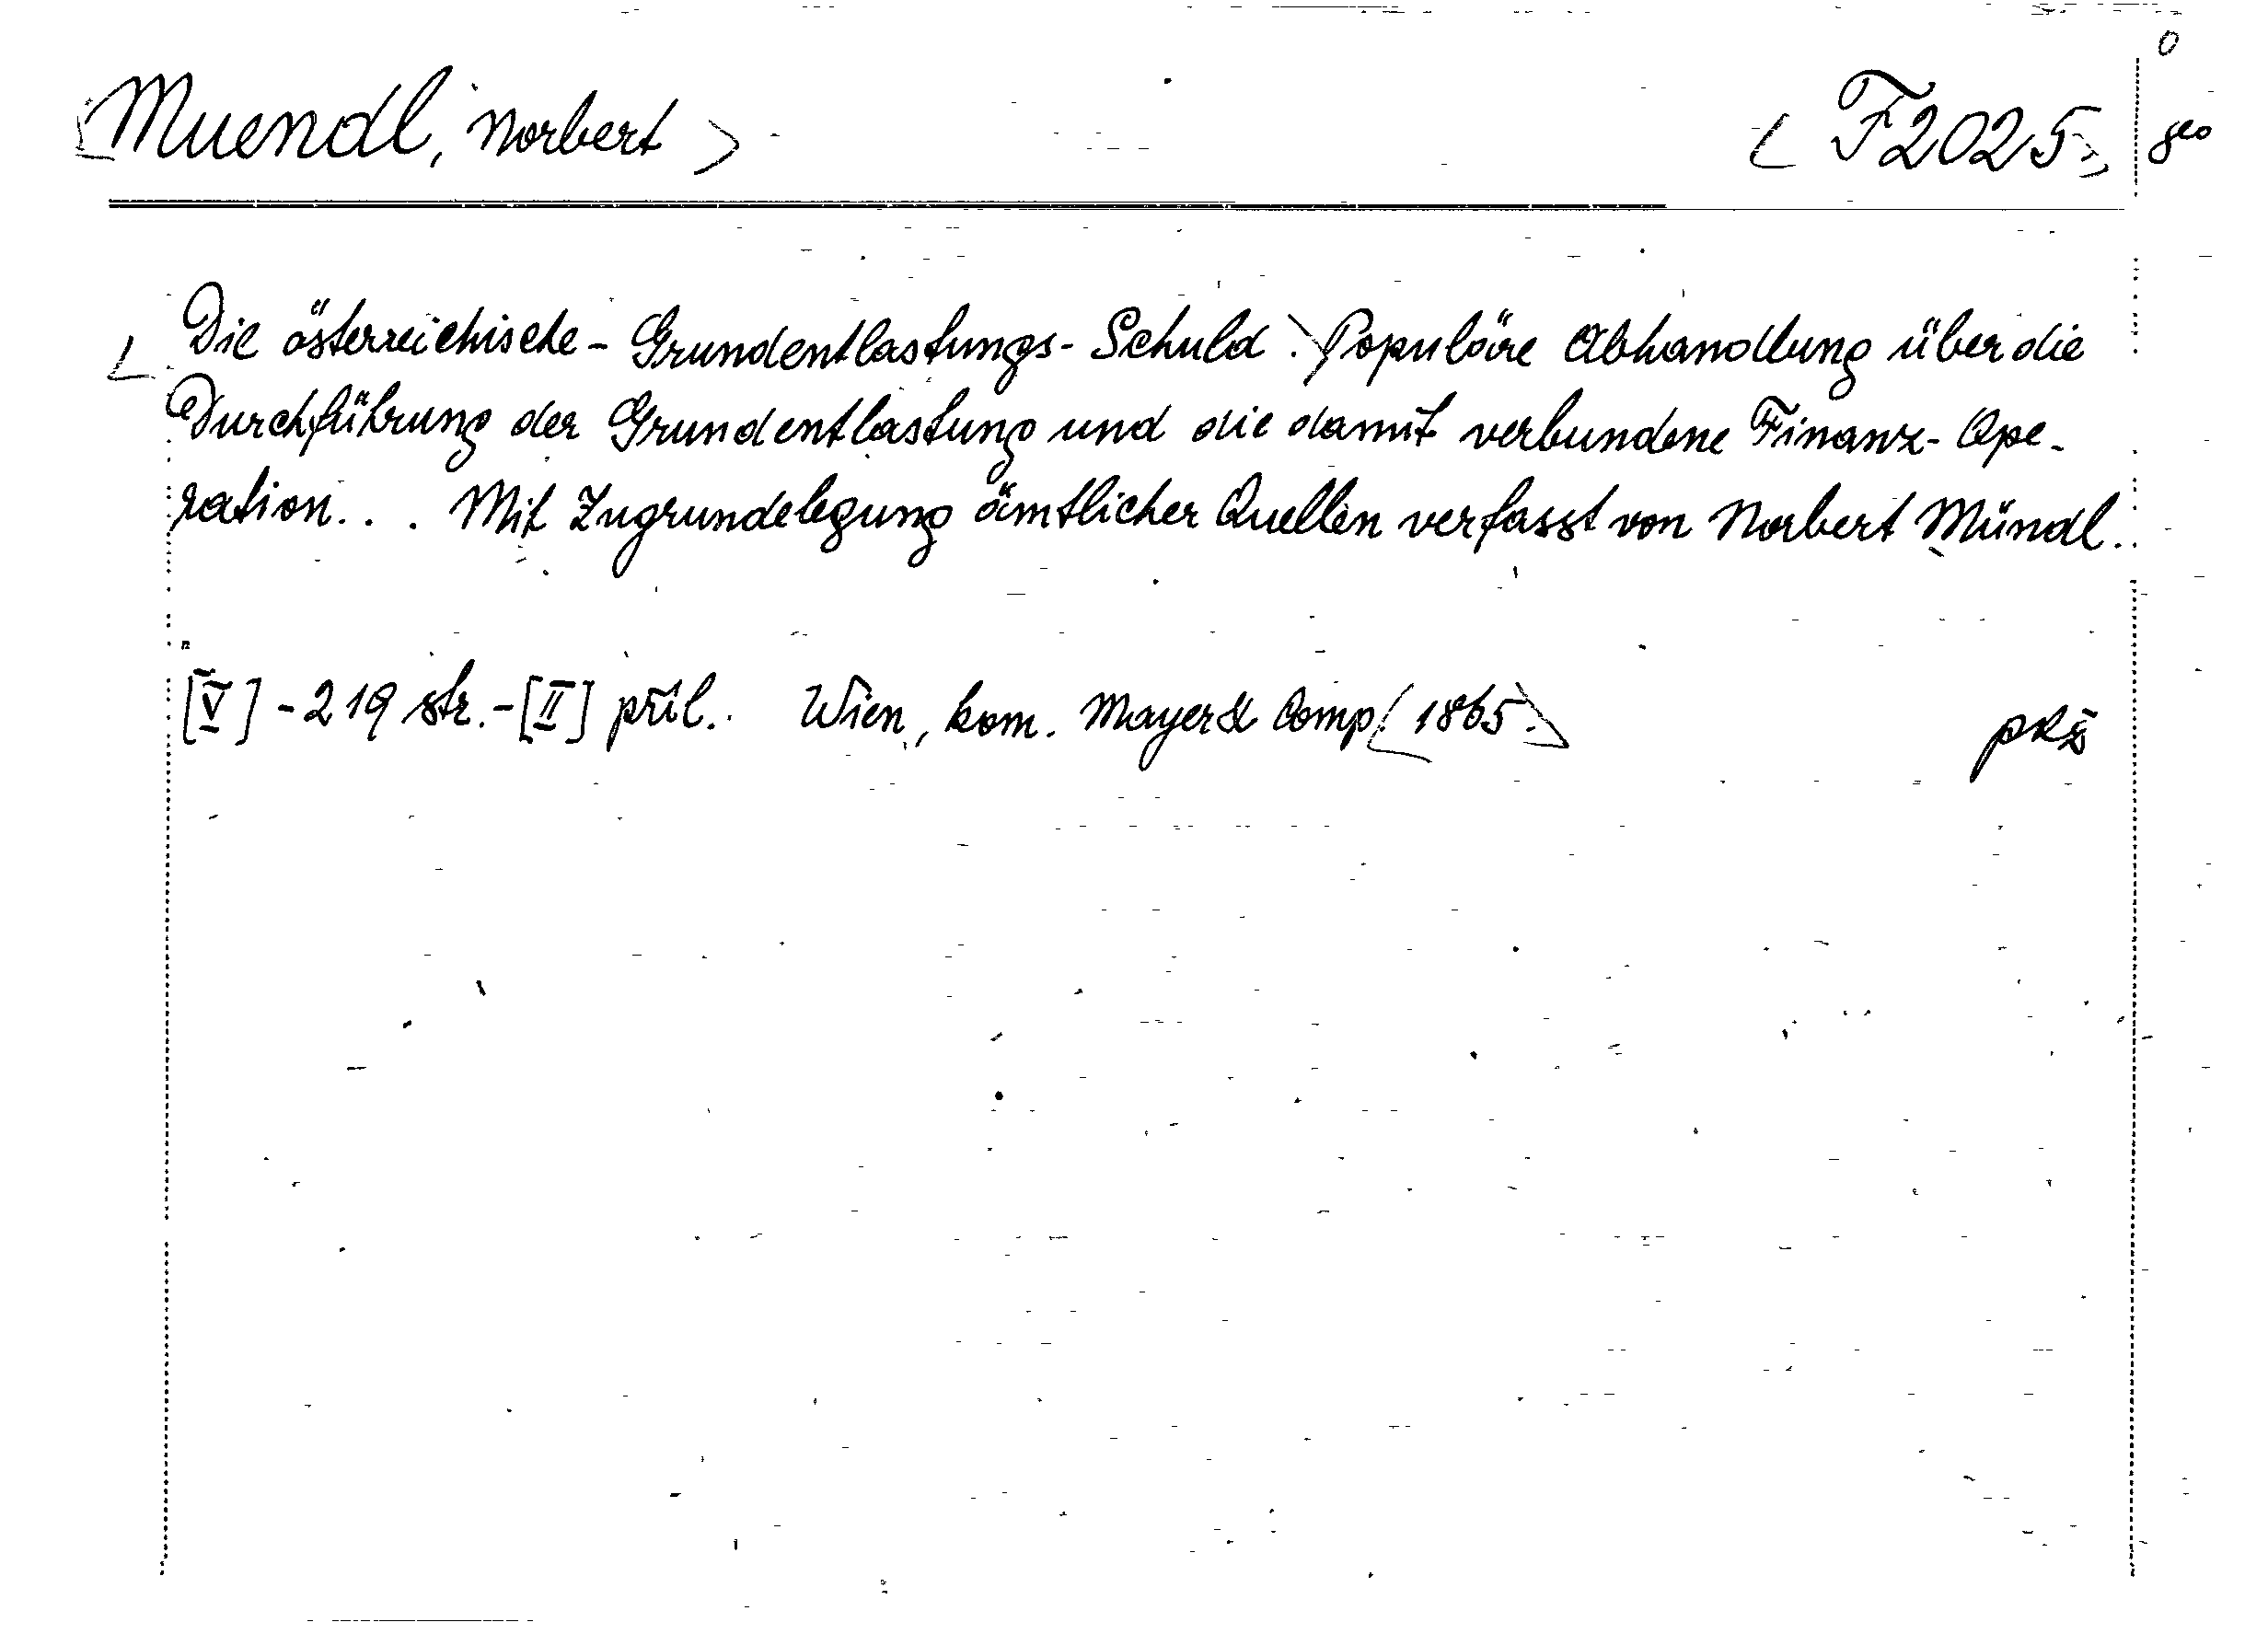 Muendl, Norbert F2025 8°
Die österreichische-Grundentlastungs-Schuld. Populäre Abhandlung über die
Durchführung der Grundentlastung und die damit verbundene Finanz-Ope-
ration... Mit Zugrundelegung ämtlicher Quellen verfasst von Norbert Mündl.
[V]-219 str.-[II] příl. Wien, kom. Mayer & Comp. 1865.